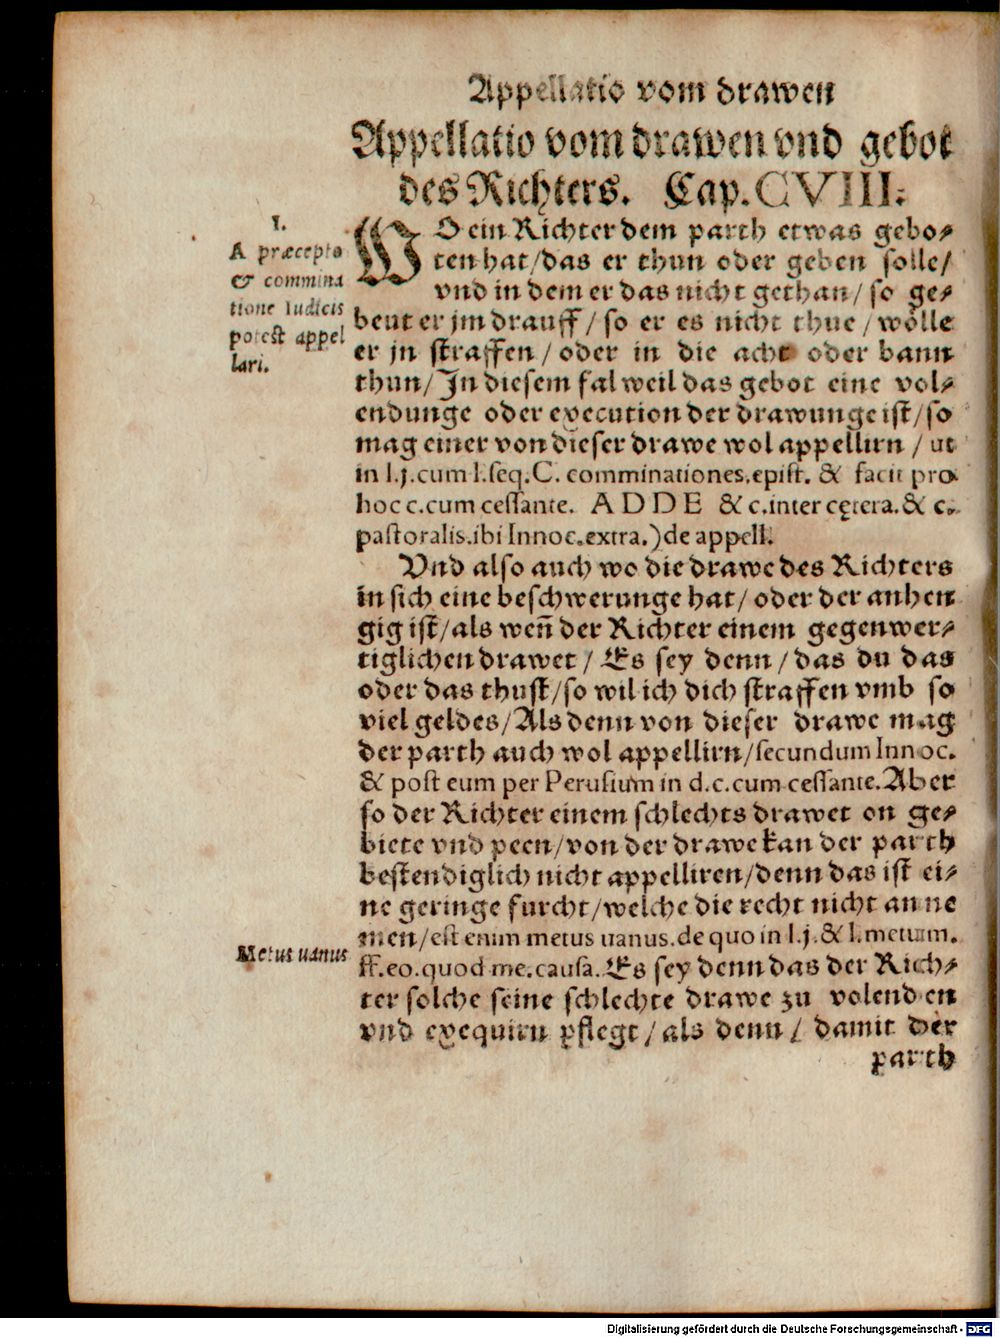 Appellatio vom drawen
Appellatio vom drawen vnd gebot
des Richters. Cap. CVIII.
I.
A præcepto
& commina
tione Iudicis
potest appel
lari.
WO ein Richter dem parth etwas gebo⸗
ten hat/das er thun oder geben solle/
vnd in dem er das nicht gethan/ so ge⸗
beut er jm drauff/ so er es nicht thue/ wölle
er jn straffen/ oder in die acht oder bann
thun/ In diesem fal weil das gebot eine vol⸗
endunge oder execution der drawunge ist/ so
mag einer von dieser drawe wol appellirn / ut
in l.j.cum l.seq.C. comminationes.epist. & facit pro
hoc c.cum cessante. ADDE & c.inter cętera.& c.
pastoralis.ibi Innoc.extra.)de appell.
Vnd also auch wo die drawe des Richters
in sich eine beschwerunge hat/ oder der anhen
gig ist/als wen̄ der Richter einem gegenwer⸗
tiglichen drawet/ Es sey denn/ das du das
oder das thust/so wil ich dich straffen vmb so
viel geldes/Als denn von dieser drawe mag
der parth auch wol appellirn/secundum Innoc.
& post eum per Perusium in d.c.cum cessante.Aber
so der Richter einem schlechts drawet on ge⸗
biete vnd peen/von der drawe kan der parth
bestendiglich nicht appelliren/denn das ist ei⸗
ne geringe furcht/welche die recht nicht anne
men/est enim metus uanus.de quo in l.j.& l.metum.
Metus uanus
ff.eo.quod me.causa.Es sey denn das der Rich⸗
ter solche seine schlechte drawe zu volenden
vnd exequirn pflegt/als denn/ damit der
parth
Digitalisierung gefördert durch die Deutsche Forschungsgemeinschaft - DFG